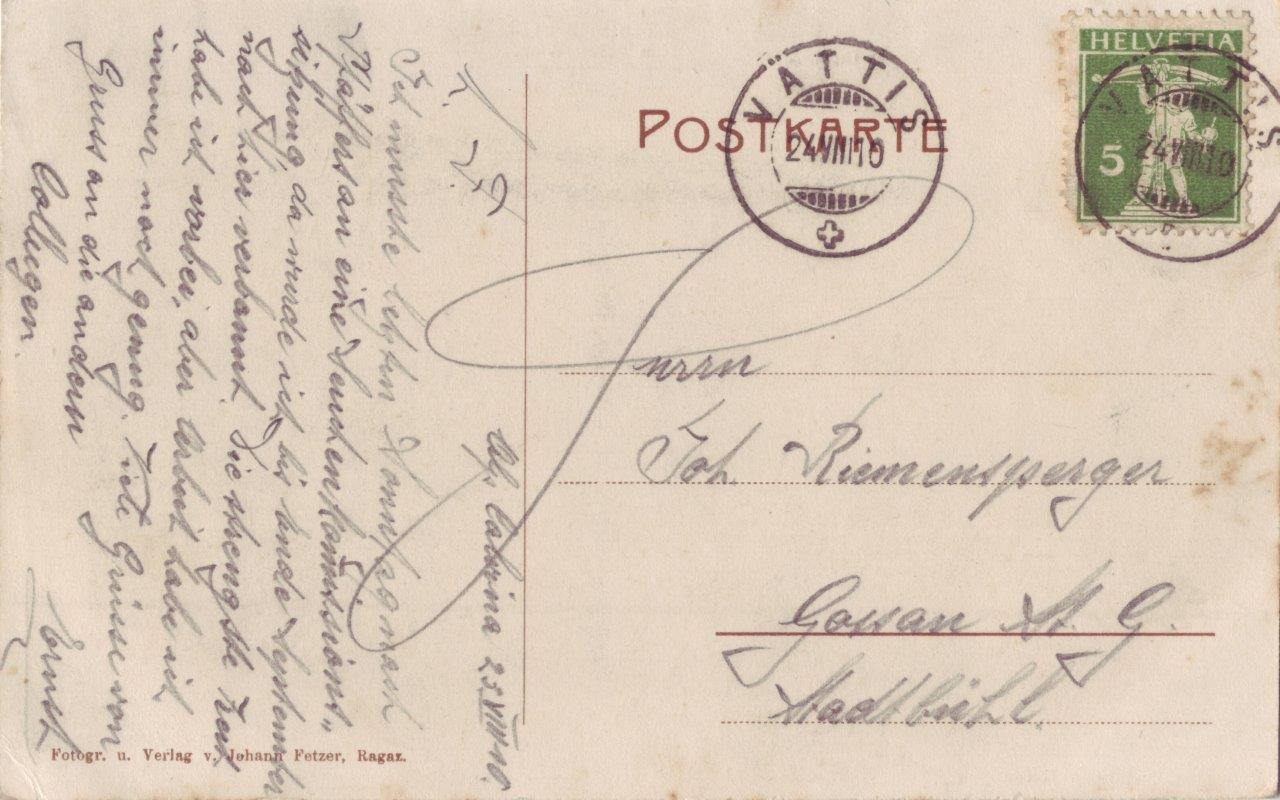 POSTKARTE
VÄTTIS
24 VIII 10
HELVETIA
5
VÄTTIS
24 VIII 10
Herrn
Joh. Riemensperger
Gossau St. G.
Stadtbühl.
Alp 23 VIII 10.
L. F.
Ich musste letzten Sonntag nach
Pfäffers an eine Seuchenkommissions-
sitzung, da wurde ich bis Ende September
nach hier verbannt. Die strengste Zeit
habe ich vorbei, aber Arbeit habe ich
immer noch genug. Viele Grüsse von
Gruss an die andern
Collegen.
Ernst
Fotogr. u. Verlag v. Johann Fetzer, Ragaz.